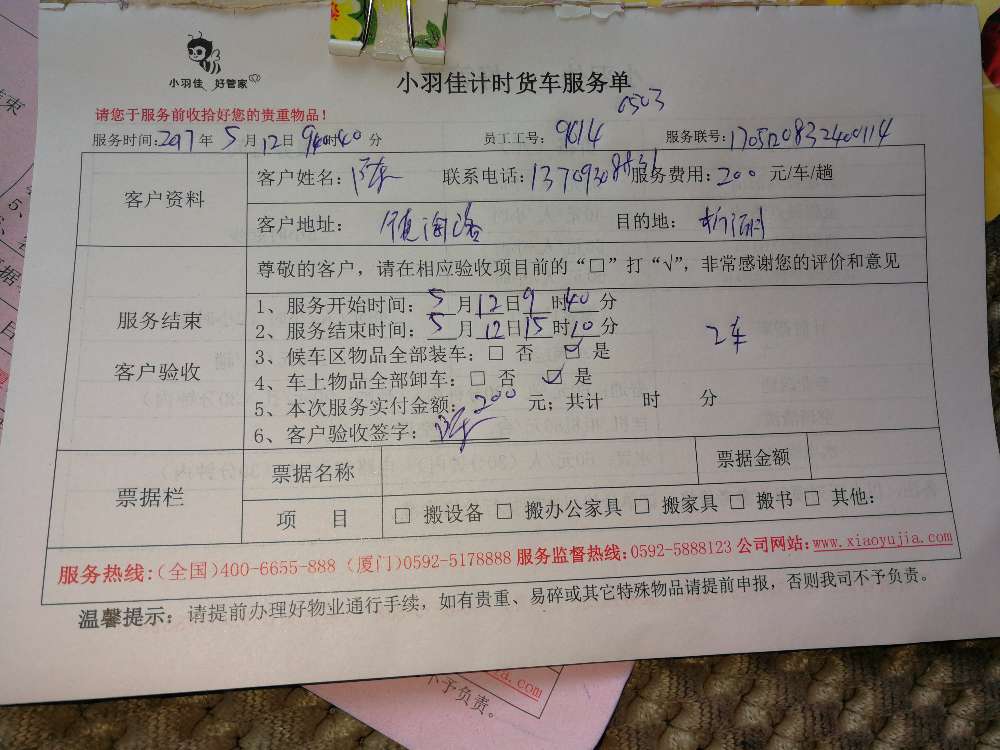 小羽佳 好管家
小羽佳计时货车服务单
请您于服务前收拾好您的贵重物品！
0503
服务时间:2017年5月12日9时40分 员工工号: 9614 服务联号:1705120832400114
客户资料
客户姓名: 联系电话: 服务费用:200元/车/趟
客户地址: 目的地:
尊敬的客户，请在相应验收项目前的“□”打“√”，非常感谢您的评价和意见
服务结束
客户验收
1、服务开始时间：5月12日9时40分
2、服务结束时间：5月12日15时10分
2车
3、候车区物品全部装车：□ 否 ☑ 是
4、车上物品全部卸车：□ 否 ☑ 是
5、本次服务实付金额：200 元；共计 时 分
6、客户验收签字：
票据栏
票据名称 票据金额
项 目 □ 搬设备 □ 搬办公家具 □ 搬家具 □ 搬书 □ 其他:
服务热线:(全国)400-6655-888 (厦门)0592-5178888 服务监督热线:0592-5888123 公司网站:www.xiaoyujia.com
温馨提示：请提前办理好物业通行手续，如有贵重、易碎或其它特殊物品请提前申报，否则我司不予负责。
jia.com
不予负责。